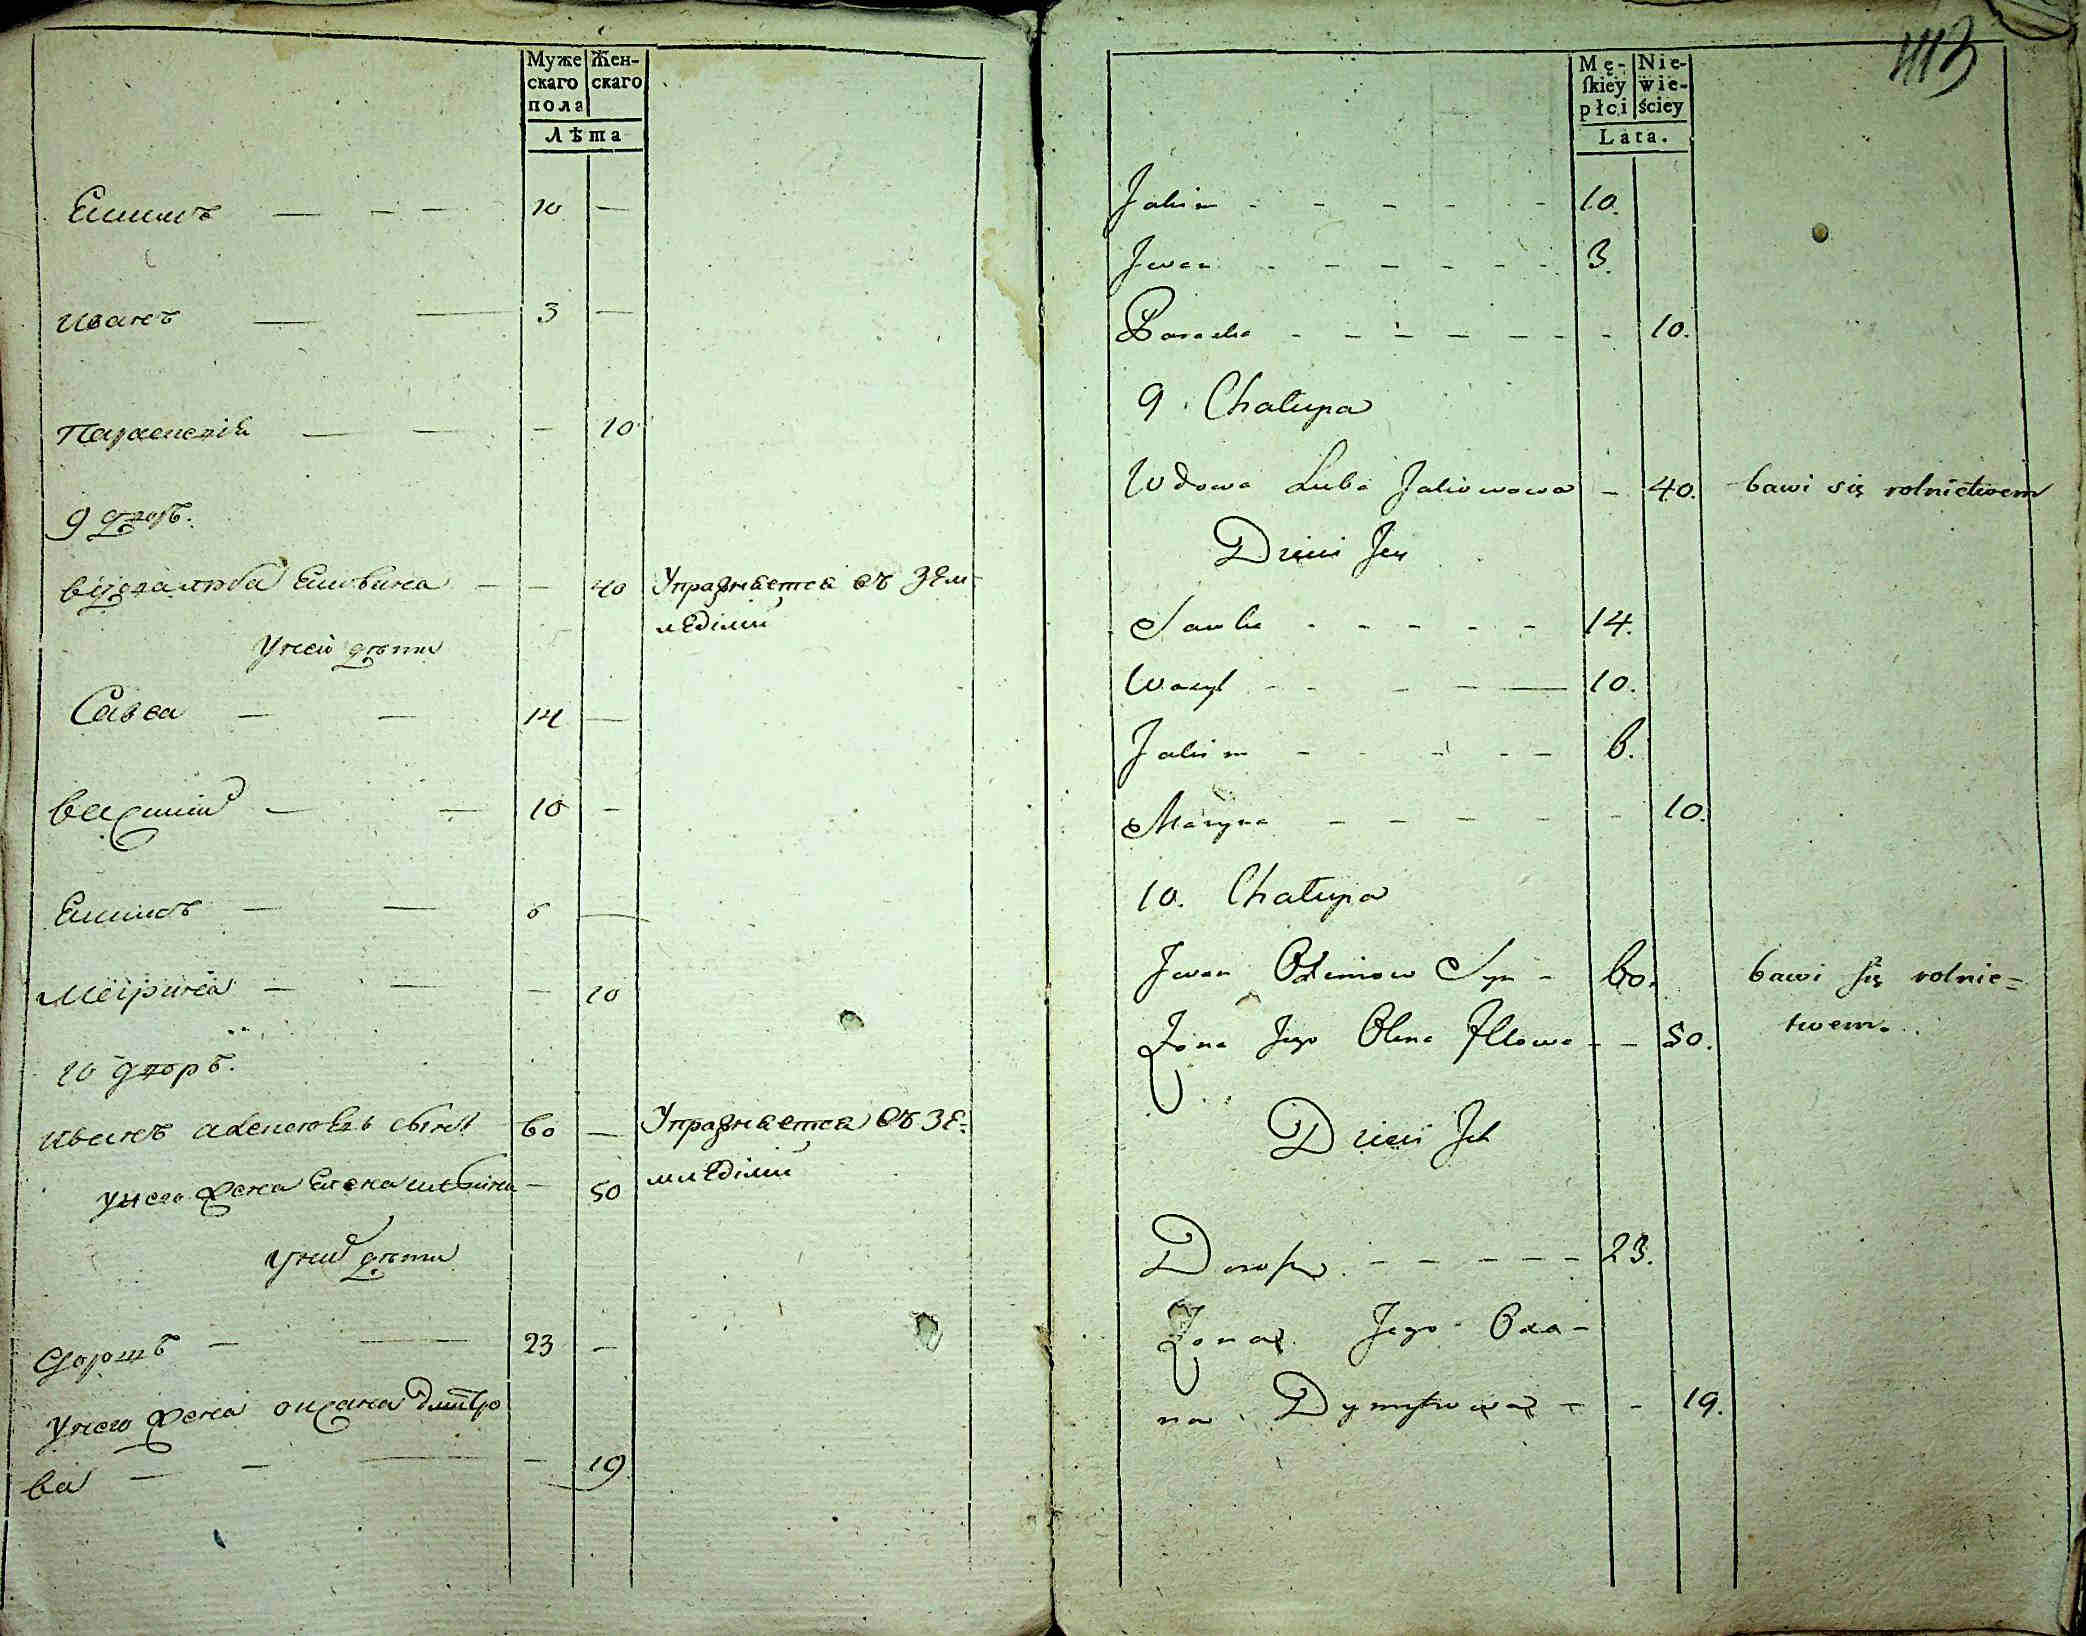 Муже
скаго
пола
Жен-
скаго
Лѣта
Екимъ — — — 10 —
Иванъ — — 3 —
Параскевія — — — 10
9 дворъ.
вдова люба Екимова — — 40 Упражняется въ зем-
леделіи
У ней дѣти
Савва — — 14 —
василій — — 10 —
Екимъ — — 6 —
Марина — — — 10
10 дворъ.
Иванъ сынъ 60 — Упражняется въ зе-
мледеліи
У него жена Елена — 50
у них дѣти
— — 23 —
У него жена оксана дмитро
ва — — — — 19
113
Mę-
skiey
płci
Nie-
wie-
ściey
Lata.
Jakim - - - - - - 10.
Jwan - - - - - - 3.
Paraska - - - - - - - 10.
9. Chałupa
Wdowa Luba Jakimowa - 40. bawi się rolnictwem
Dzieci Jey
Sawka - - - - - 14.
Wasyl - - - - — 10.
Jakim - - - - - 6.
Maryna - - - - - - 10.
10. Chałupa
Jwan Syn - 60. bawi się rolnic=
twem.
Żona Jego Olena - - 50.
Dzieci Jch
- - - - - 23.
Żona Jego Oxa-
na Dymitrowa - - 19.